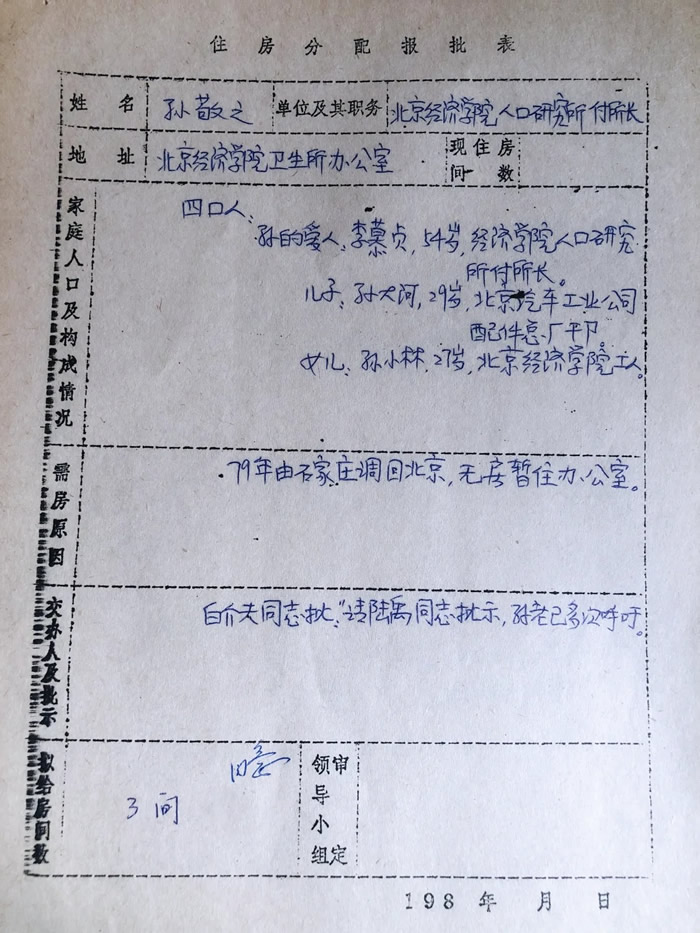 住房分配报批表
姓名 孙敬之 单位及其职务 北京经济学院人口研究所付所长
地址 北京经济学院卫生所办公室 现住房间数
家庭人口及构成情况
四口人:
孙的爱人:李慕贞,54岁,经济学院人口研究
所付所长。
儿子:孙大河,29岁,北京汽车工业公司
配件总厂干卩。
女儿:孙小林,27岁,北京经济学院工人。
需房原因
79年由石家庄调回北京,无房暂住办公室。
交办人及批示
白介夫同志批:“请陆禹同志批示,孙老已多次呼吁。
拟给房间数
3间
领导小组审定
198 年 月 日